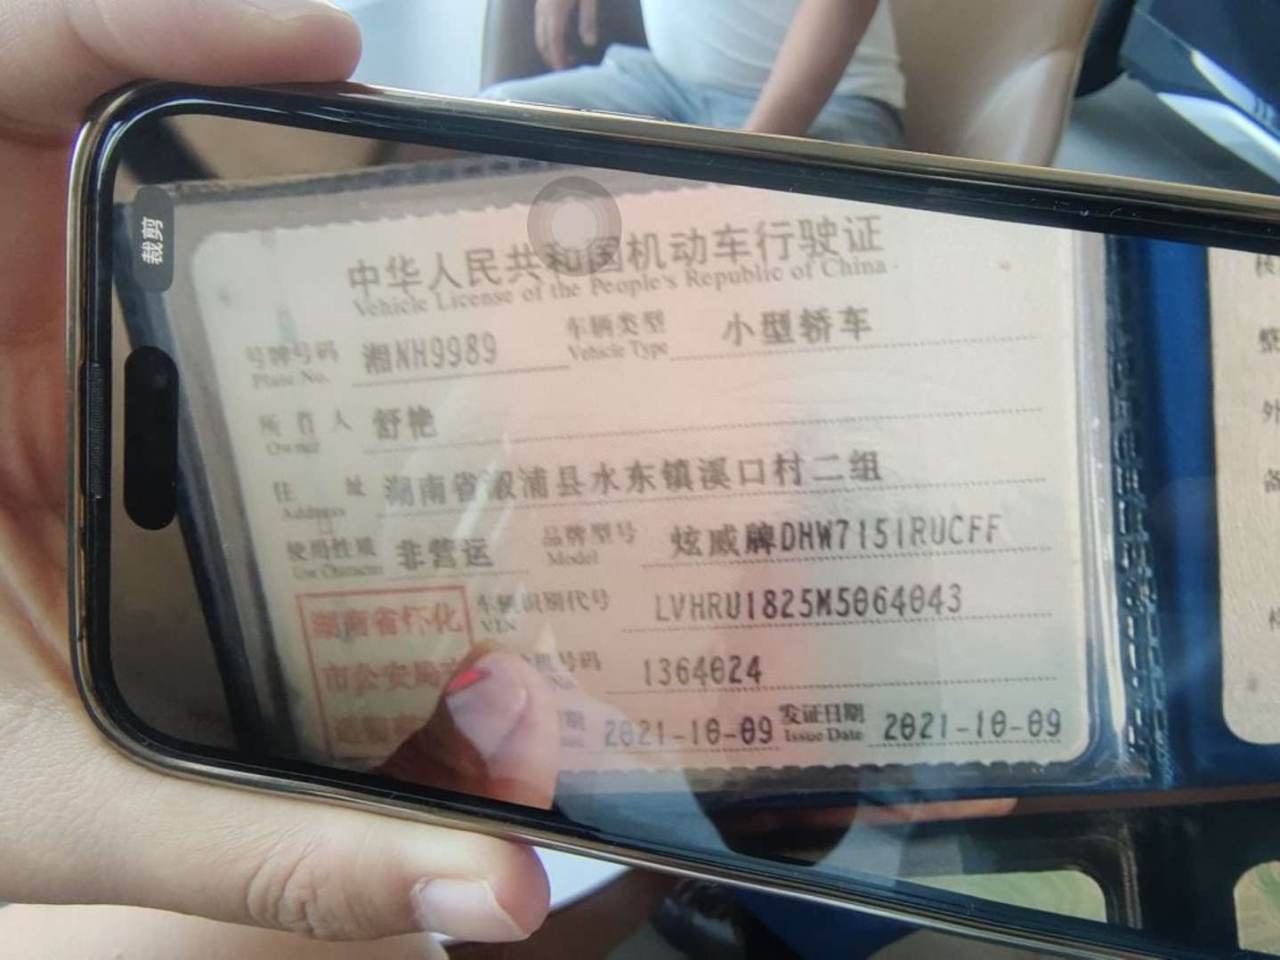 裁剪
中华人民共和国机动车行驶证
Vehicle License of the People's Republic of China
号牌号码 湘NH9989 车辆类型 小型轿车
Plate No. Vehicle Type
所有人 舒艳
Owner
住址 湖南省溆浦县水东镇溪口村二组
Address
使用性质 非营运 品牌型号 炫威牌DHW7151RUCFF
Use Character Model
湖南省怀化 车辆识别代号 LVHRU1825M5064043
VIN
市公安局 号码 1364024
期 2021-10-09 发证日期 2021-10-09
Issue Date
整
外